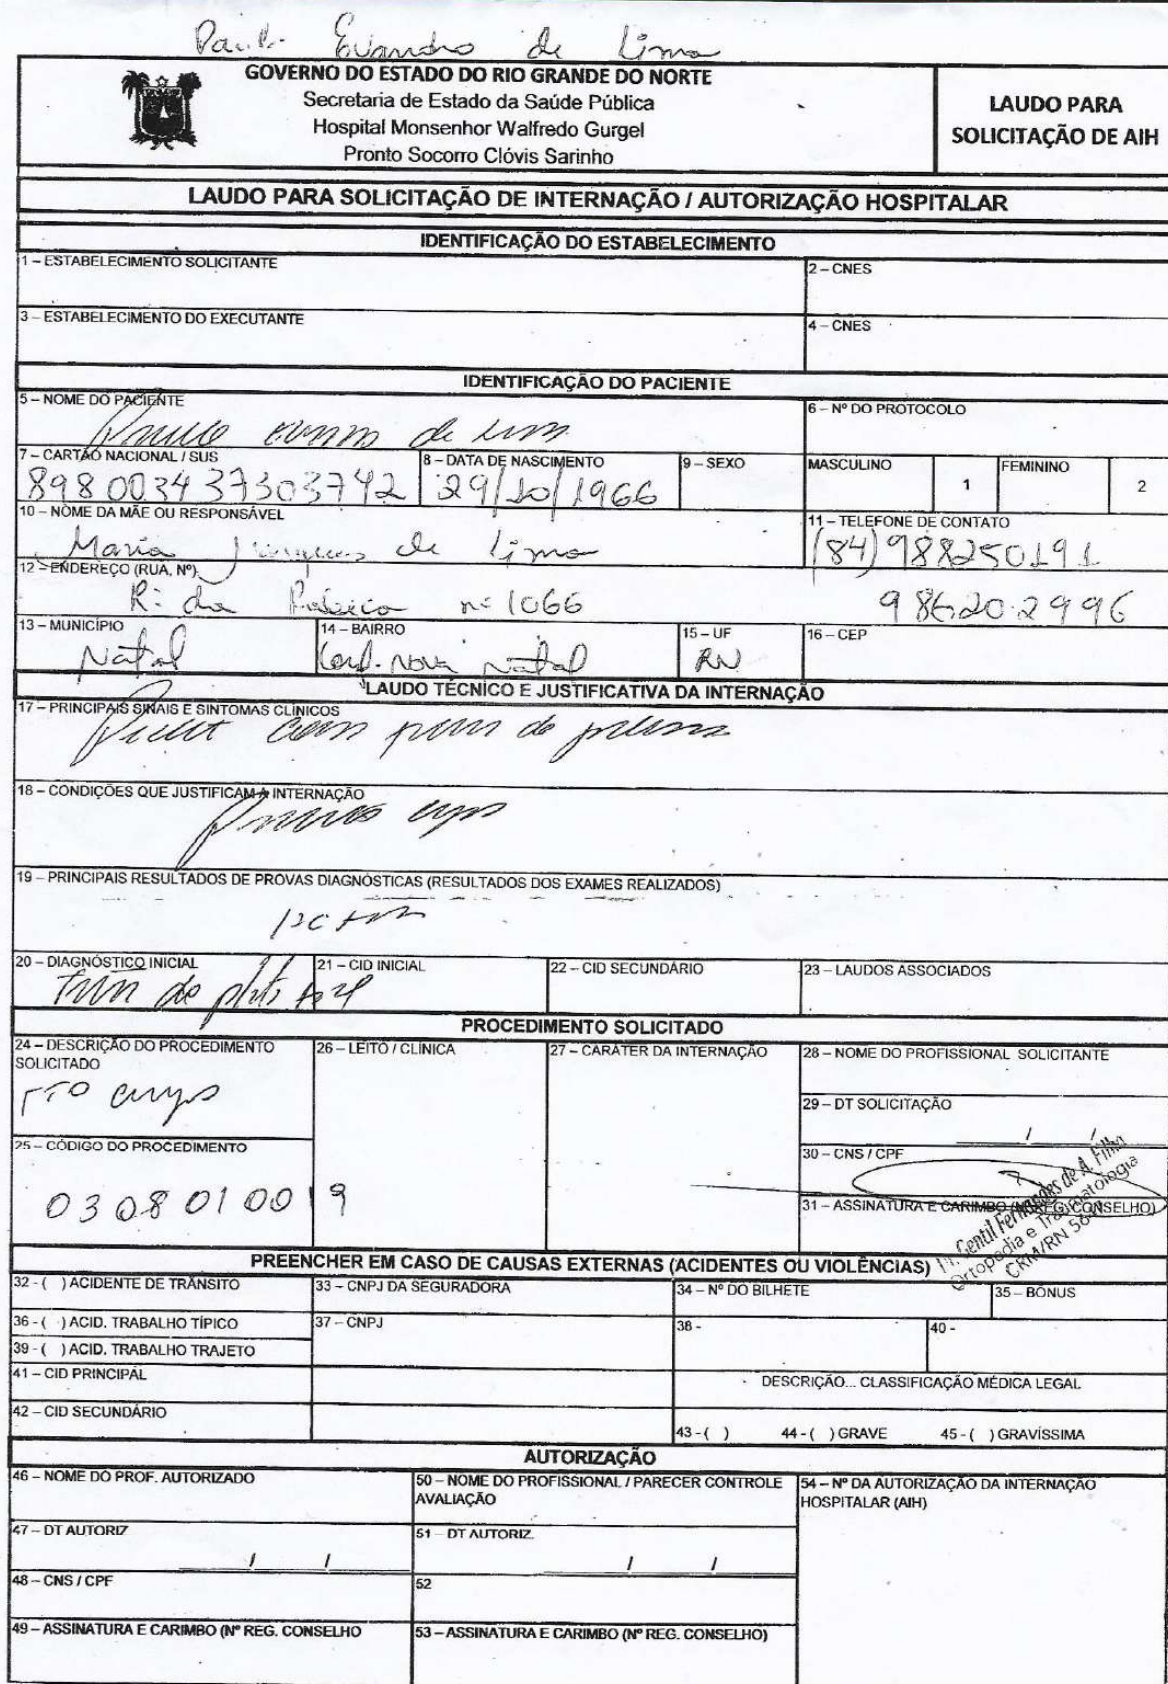 Evandro de Lima
GOVERNO DO ESTADO DO RIO GRANDE DO NORTE
Secretaria de Estado da Saúde Pública
Hospital Monsenhor Walfredo Gurgel
Pronto Socorro Clóvis Sarinho
LAUDO PARA
SOLICITAÇÃO DE AIH
LAUDO PARA SOLICITAÇÃO DE INTERNAÇÃO / AUTORIZAÇÃO HOSPITALAR
IDENTIFICAÇÃO DO ESTABELECIMENTO
1 – ESTABELECIMENTO SOLICITANTE
2 – CNES
3 – ESTABELECIMENTO DO EXECUTANTE
4 – CNES
IDENTIFICAÇÃO DO PACIENTE
5 – NOME DO PACIENTE
de
6 – Nº DO PROTOCOLO
7 – CARTÃO NACIONAL / SUS
898003437303742
8 – DATA DE NASCIMENTO
29/10/1966
9 – SEXO
MASCULINO 1 FEMININO 2
10 – NOME DA MÃE OU RESPONSÁVEL
Maria de Lima
11 – TELEFONE DE CONTATO
(84) 988250191
12 – ENDEREÇO (RUA, Nº)
R: da nº 1066
98620.2996
13 – MUNICÍPIO
Natal
14 – BAIRRO
Nova Natal
15 – UF
RN
16 – CEP
LAUDO TÉCNICO E JUSTIFICATIVA DA INTERNAÇÃO
17 – PRINCIPAIS SINAIS E SINTOMAS CLÍNICOS
com de
18 – CONDIÇÕES QUE JUSTIFICAM A INTERNAÇÃO
19 – PRINCIPAIS RESULTADOS DE PROVAS DIAGNÓSTICAS (RESULTADOS DOS EXAMES REALIZADOS)
20 – DIAGNÓSTICO INICIAL
de
21 – CID INICIAL
22 – CID SECUNDÁRIO
23 – LAUDOS ASSOCIADOS
PROCEDIMENTO SOLICITADO
24 – DESCRIÇÃO DO PROCEDIMENTO
SOLICITADO
26 – LEITO / CLÍNICA
27 – CARÁTER DA INTERNAÇÃO
28 – NOME DO PROFISSIONAL SOLICITANTE
29 – DT SOLICITAÇÃO
/ /
25 – CÓDIGO DO PROCEDIMENTO
0308010019
30 – CNS / CPF
31 – ASSINATURA E CARIMBO (Nº REG. CONSELHO)
Gentil Fernandes de A. Filho
Ortopedia e Traumatologia
CRM/RN
PREENCHER EM CASO DE CAUSAS EXTERNAS (ACIDENTES OU VIOLÊNCIAS)
32 - ( ) ACIDENTE DE TRÂNSITO
33 – CNPJ DA SEGURADORA
34 – Nº DO BILHETE
35 – BÔNUS
36 - ( ) ACID. TRABALHO TÍPICO
37 – CNPJ
38 -
40 -
39 - ( ) ACID. TRABALHO TRAJETO
41 – CID PRINCIPAL
DESCRIÇÃO... CLASSIFICAÇÃO MÉDICA LEGAL
42 – CID SECUNDÁRIO
43 - ( ) 44 - ( ) GRAVE 45 - ( ) GRAVÍSSIMA
AUTORIZAÇÃO
46 – NOME DO PROF. AUTORIZADO
50 – NOME DO PROFISSIONAL / PARECER CONTROLE
AVALIAÇÃO
54 – Nº DA AUTORIZAÇÃO DA INTERNAÇÃO
HOSPITALAR (AIH)
47 – DT AUTORIZ
/ /
51 – DT AUTORIZ.
/ /
48 – CNS / CPF
52
49 – ASSINATURA E CARIMBO (Nº REG. CONSELHO
53 – ASSINATURA E CARIMBO (Nº REG. CONSELHO)